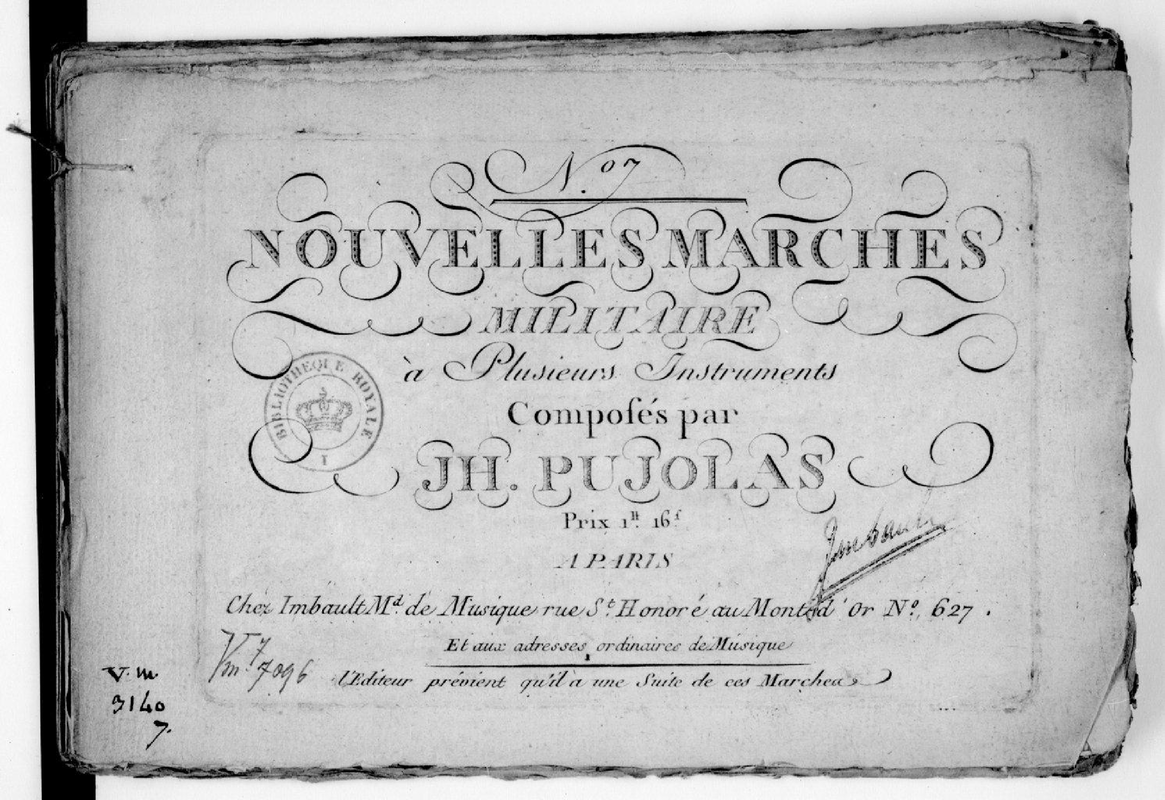 N.º 7
NOUVELLES MARCHES
MILITAIRE
à Plusieurs Instruments
Composés par
JH. PUJOLAS
Prix 1ᴴ 16ˢ
A PARIS
Imbault
Chez Imbault Mᵈ de Musique rue Sᵗ Honoré au Mont d'Or Nº. 627.
Et aux adresses ordinaires de Musique
L'Editeur prévient qu'il a une Suite de ces Marches
BIBLIOTHEQUE ROYALE
I
Vm.⁷ 7096
V.m
3140
7.
A